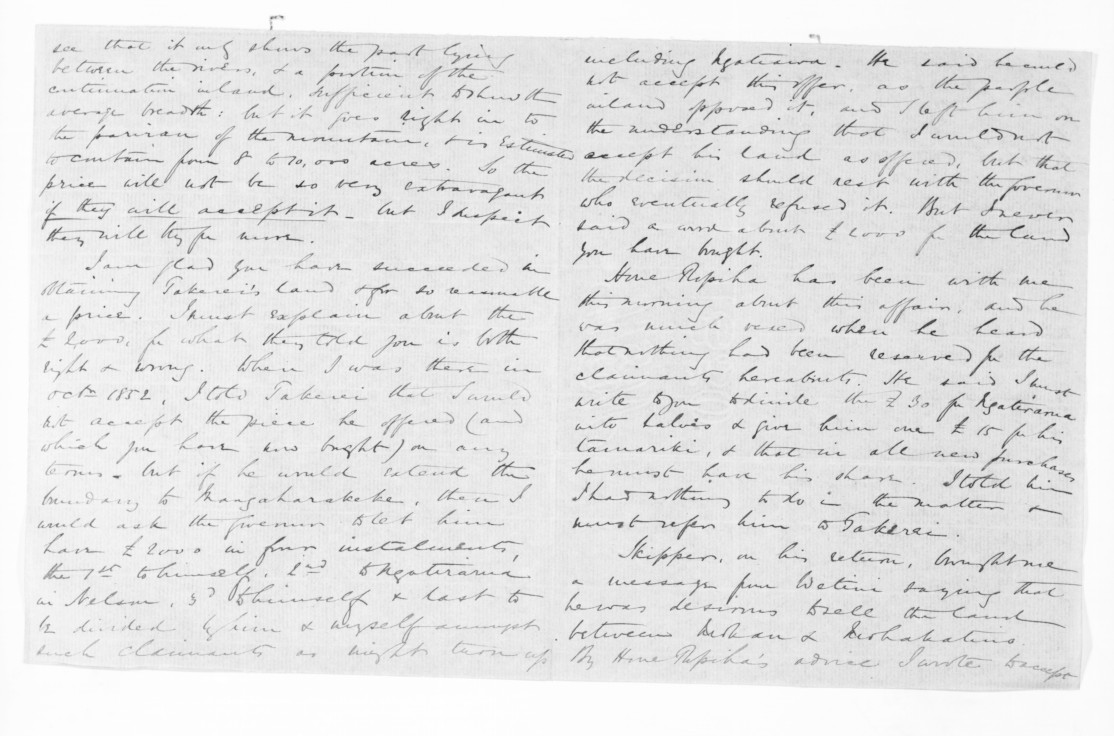 see that it only shows the part lying
between the rivers, & a portion of the
continuation inland. Sufficient to show the
average breadth: but it goes right in to
the of the mountain, & is estimated
to contain from 8 to 10,000 acres. So the
price will not be so very extravagant
if they will accept it - but I expect
they will try for more.
I am glad you have succeeded in
obtaining Takerei's land & for so reasonable
a price. I must explain about the
£2000, for what they told you is both
right & wrong. When I was there in
Octr 1852, I told Takerei that I would
not accept the piece he offered (and
which you have now bought) on any
terms - but if he would extend the
boundary to Mangaharakeke, then I
would ask the Governor to let him
have £2000 in four instalments,
the 1st to himself, 2nd to Ngatirarua
in Nelson, 3d to himself & last to
be divided by him & myself amongst
such claimants as might turn up
including Ngatiawa. He said he could
not accept this offer, as the people
inland opposed it, and I left him on
the understanding that I would not
accept his land as offered, but that
the decision should rest with the Governor
who eventually refused it. But I never
said a word about £2000 for the land
you have bought.
Hone Ropiha has been with me
this morning about this affair, and he
was much vexed when he heard
that nothing had been reserved for the
claimants hereabouts. He said I must
write to you to divide the £30 for Ngatirarua
into halves & give him one £15 for his
tamariki, & that in all new purchases
he must have his share. I told him
I had nothing to do in the matter &
must refer him to Takerei.
Skipper, on his return, brought me
a message from Wetini saying that
he was desirous to sell the land
between Mokau & Mohakatino
By Hone Ropiha's advice I wrote to accept